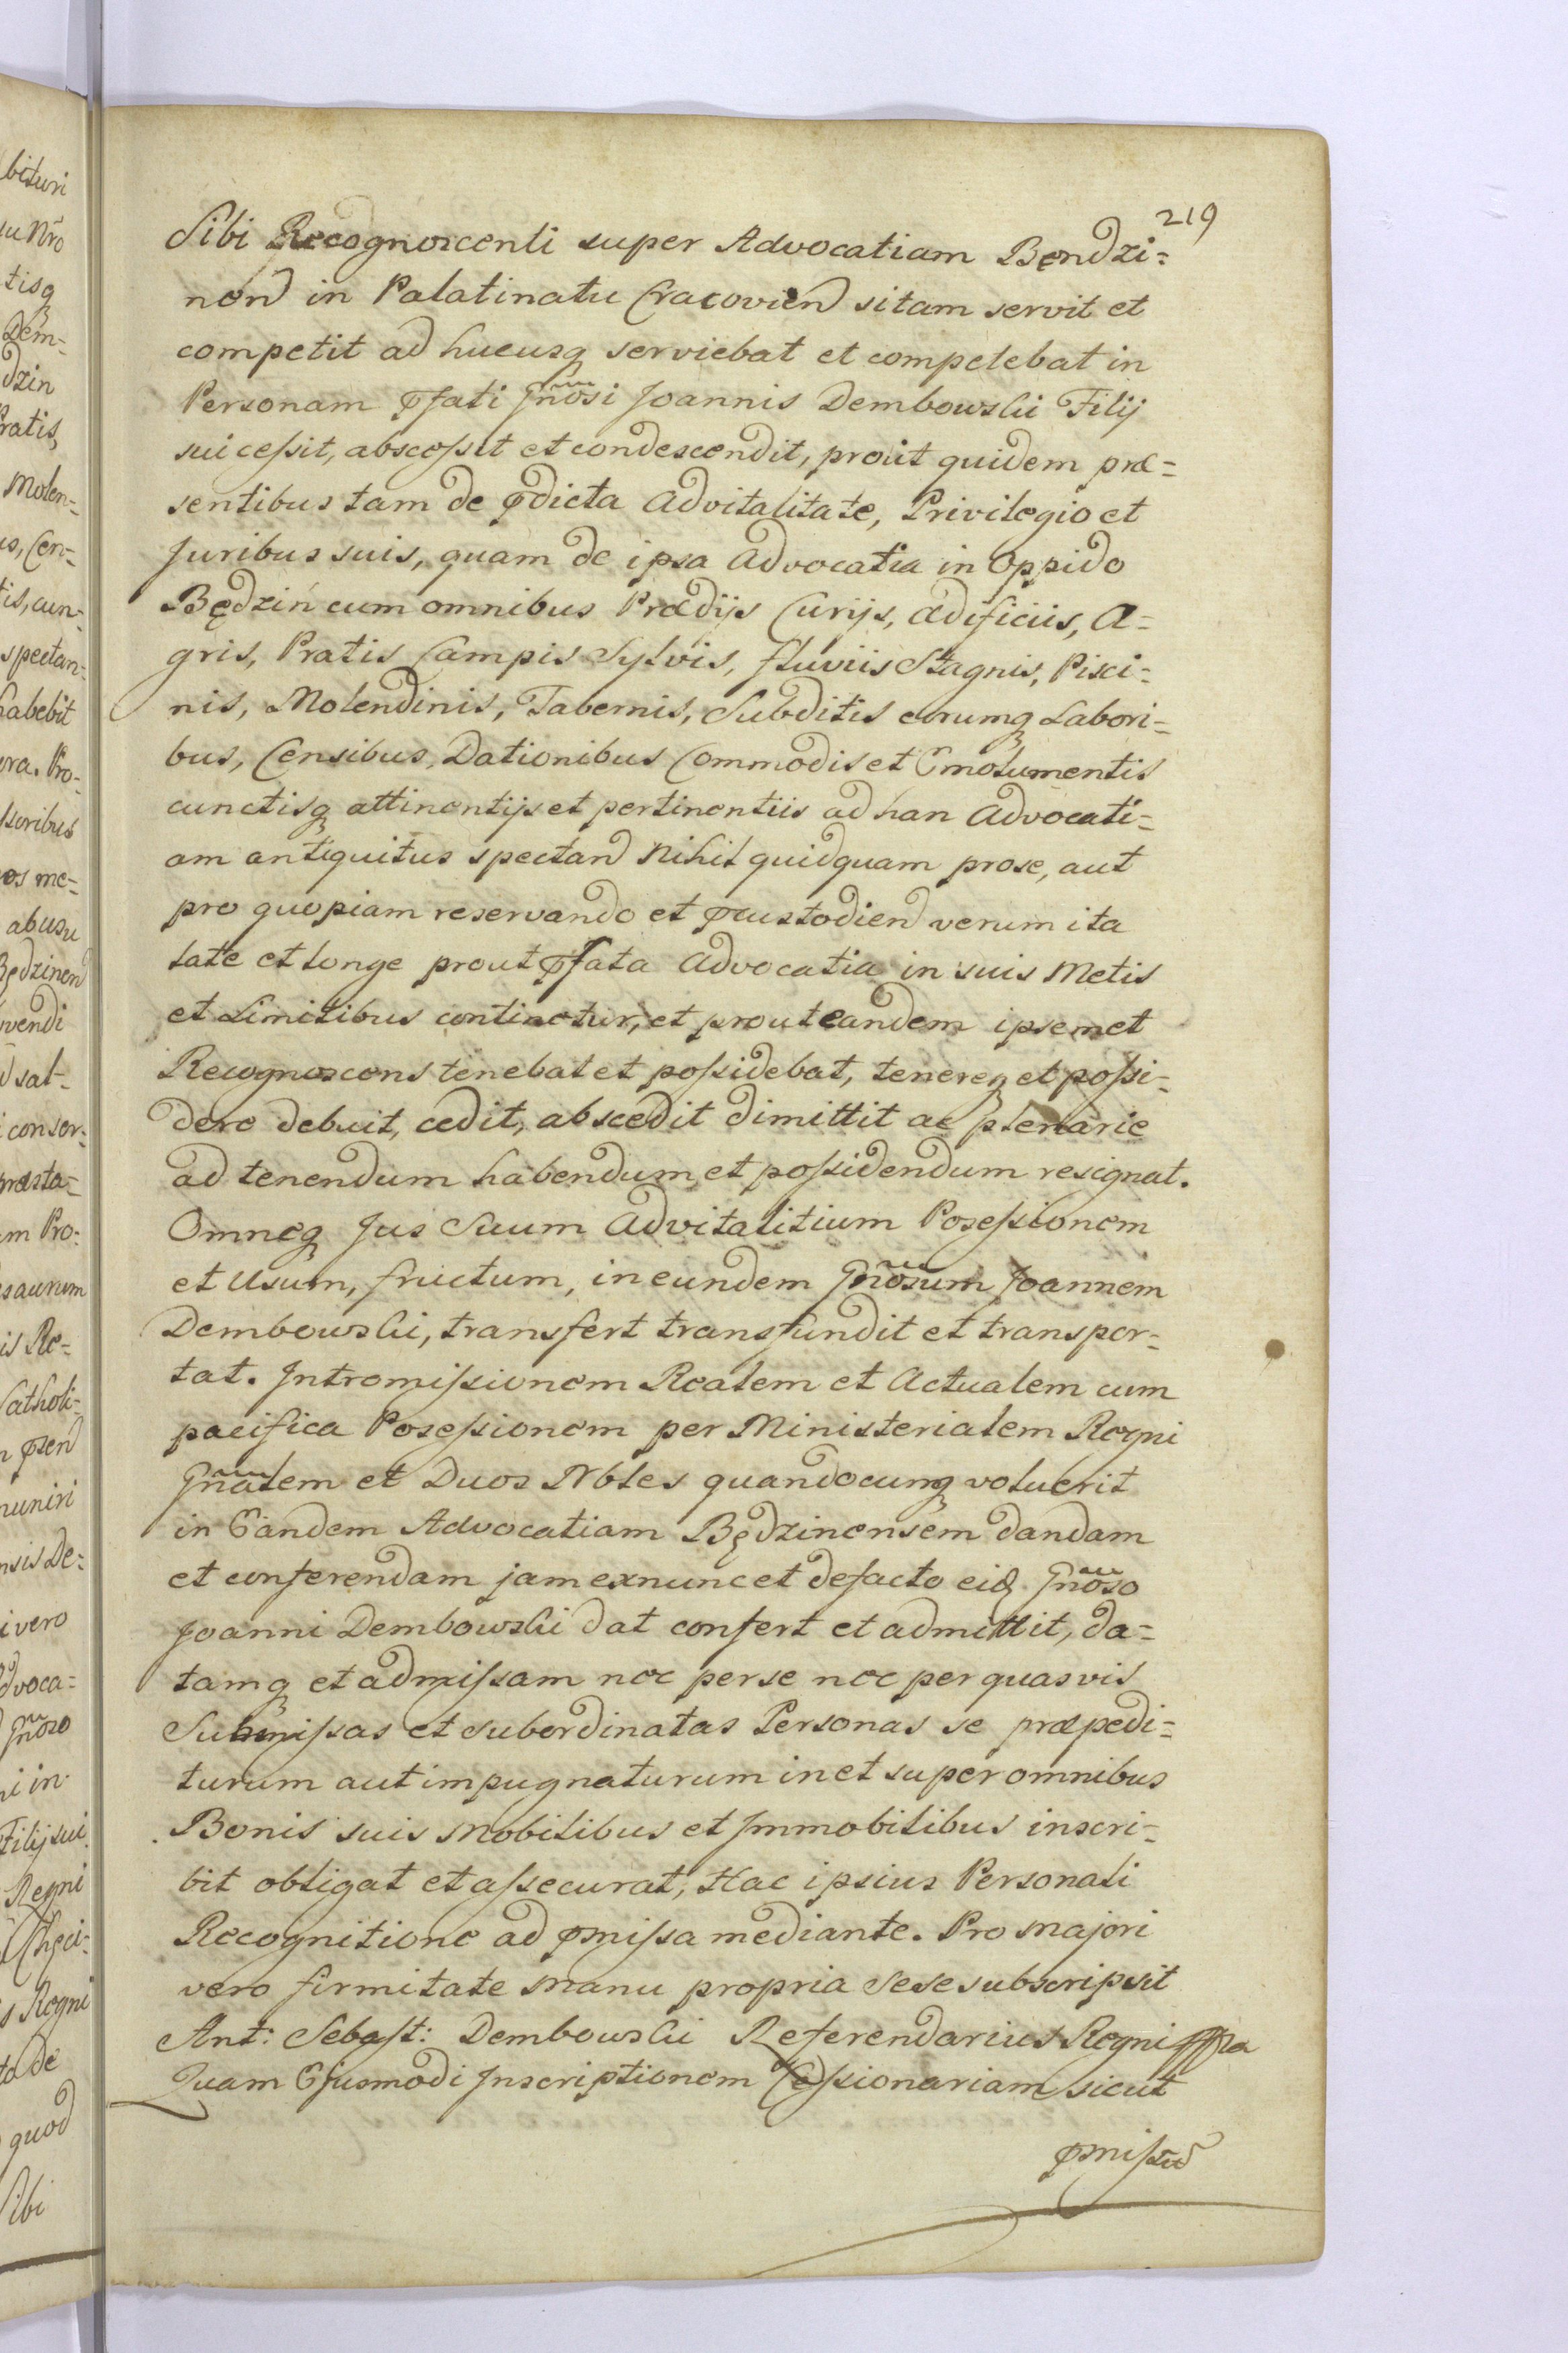 219
Sibi Recognoscenti super Advocatiam Bendzi=
nen in Palatinatu Cracovien sitam servit et
competit ad hucusq serviebat et competebat in
Personam pfati Gnosi Joannis Dembowski Filij
sui cessit, abscessit et condescendit, prout quidem præ=
sentibus tam de pdicta Advitalitate, Privilegio et
Juribus suis, quam de ipsa Advocatia in Oppido
Będzin cum omnibus Prædijs Curijs, ædificiis, A=
gris, Pratis Campis Sylvis, fluviis Stagnis, Pisci=
nis, Molendinis, Tabernis, Subditis eorumq Labori=
bus, Censibus, Dationibus Commodis et Emolumentis
cunctisq attinentijs et pertinentiis ad han Advocati=
am antiquitus spectand nihil quidquam prose, aut
pro quopiam reservando et pcustodiend verum ita
late et longe prout pfata Advocatia in suis Metis
et Limitibus continetur, et prout eandem ipsemet
Recognoscens tenebat et possidebat, tenereq et possi=
dere debuit, cedit, abscedit dimittit ac plenarie
ad tenendum habendum et possidendum resignat.
Omneq Jus Suum Advitalitium Posessionem
et Usum, fructum, in eundem Gnosum Joannem
Dembowski, transfert transfundit et transpor=
tat. Intromissionem Realem et Actualem cum
pacifica Posessionem per Ministerialem Regni
Gnalem et Duos Nbles quandocunq voluerit
in Eandem Advocatiam Będzinensem dandam
et conferendam jam exnunc et defacto eid. Gnoso
Joanni Dembowski dat confert et admittit, da=
tamq et admissam nec perse nec per quasvis
Submissas et subordinatas Personas se præpedi=
turum aut impugnaturum in et super omnibus
Bonis suis Mobilibus et Immobilibus inscri=
bit obligat et assecurat, Hac ipsius Personali
Recognitione ad pmissa mediante. Pro majori
vero firmitate manu propria sese subscripsit
Ant: Sebast: Dembowski Referendarius Regni
Quam Ejusmodi Inscriptionem Cessionariam sicut